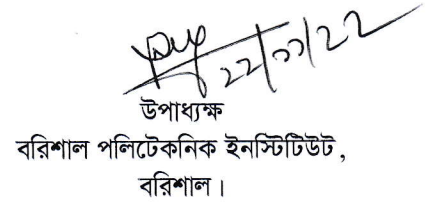 ২২/১১/২২
উপাধ্যক্ষ
বরিশাল পলিটেকনিক ইনস্টিটিউট,
বরিশাল।